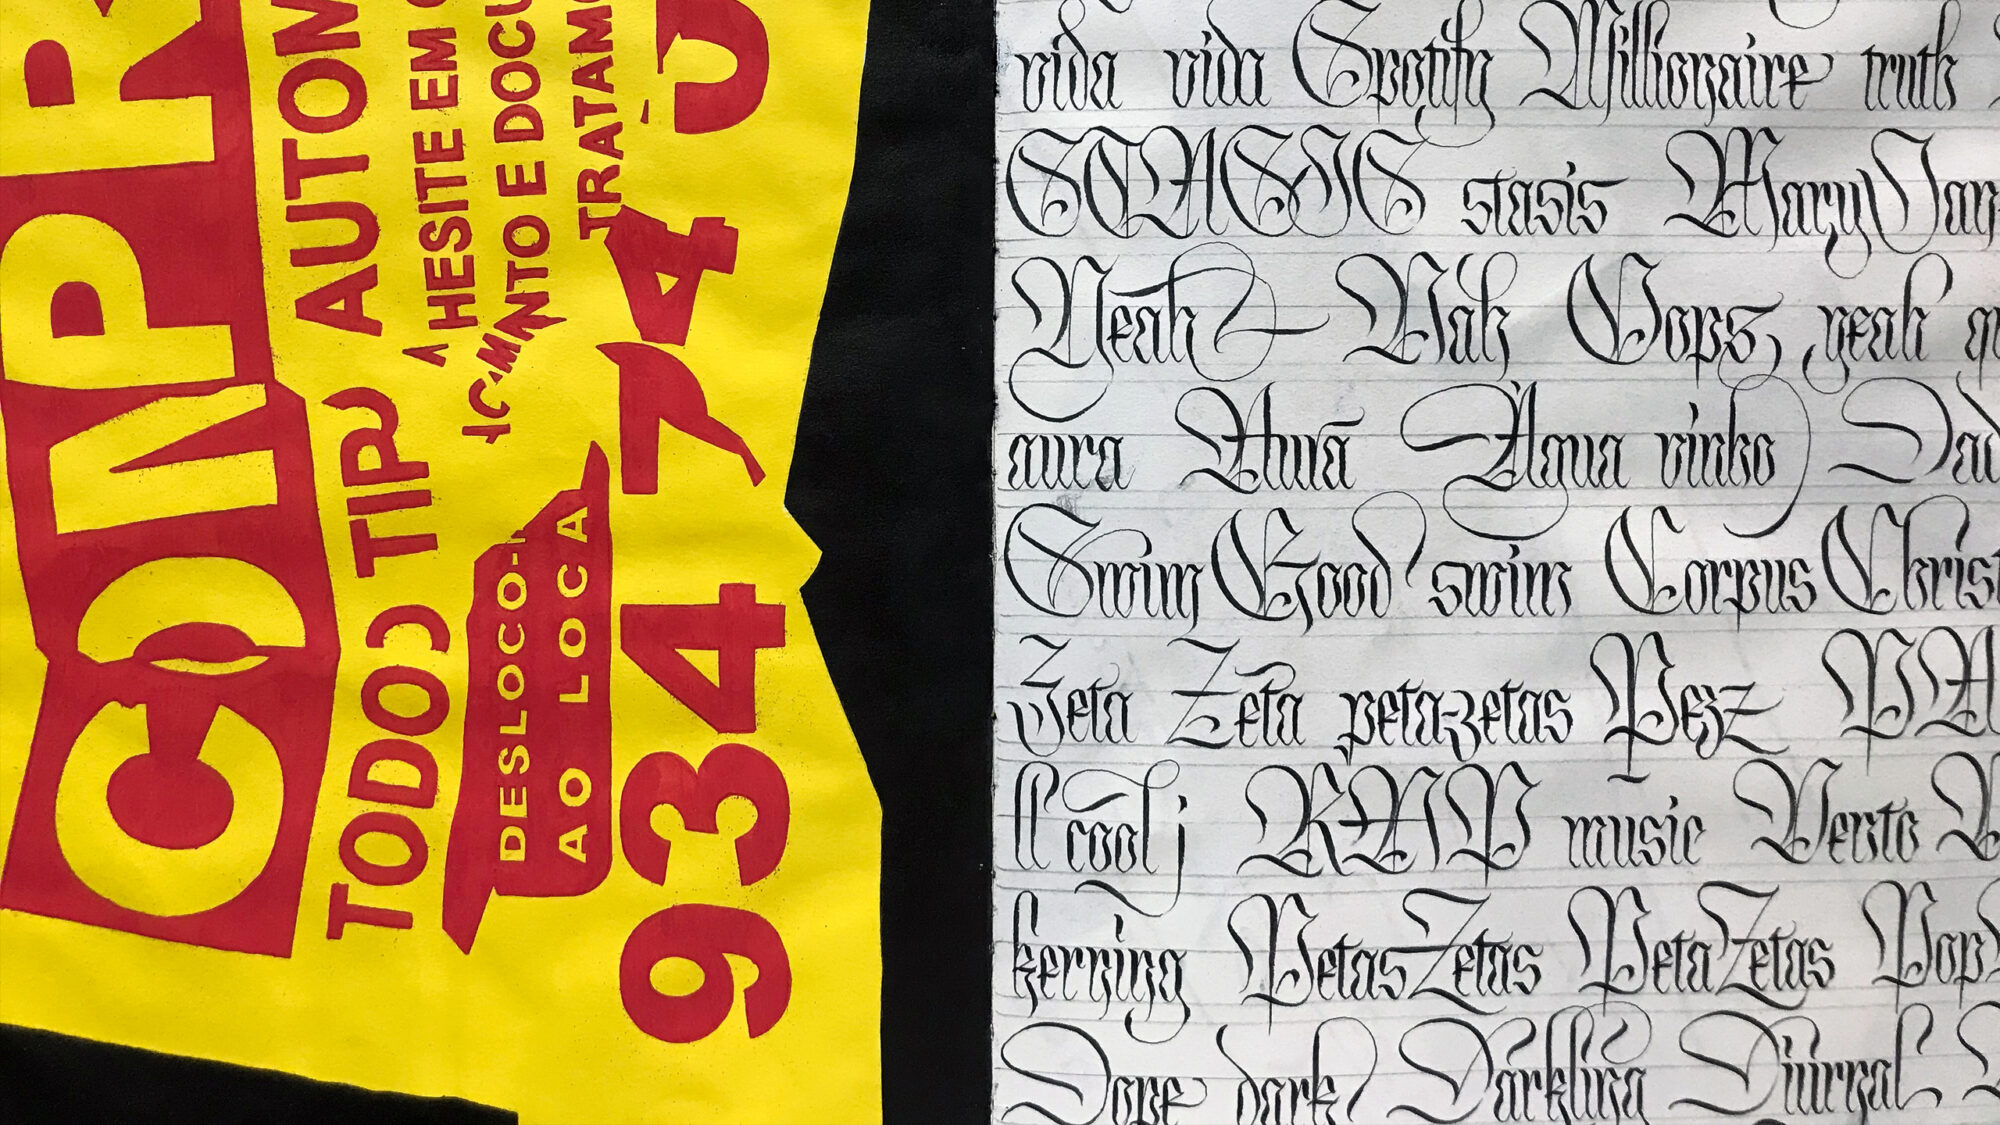 COMPR
AUTOM
TODO TIP
HESITE EM
NTO E DOCU
TRATAM
DESLOCO-
AO LOCA
934 74
vida vida Spotify Millionaire truth
stasis Mary Jan
Yeah Nah Oops, yeah
aura Aura Agua vinho Dad
Swim Good swim Corpus Christ
Zeta Zeta peta-zetas Pez
ll cool j RAP music Vento
kerning PetasZetas PetaZetas Pop
Dope dark Darkling Diurnal